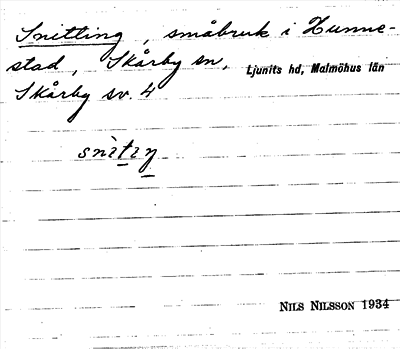 Snitting, småbruk i Hunne-
stad, Skårby sn, Ljunits hd, Malmöhus län
Skårby sv. 4
snìtiŋ
NILS NILSSON 1934